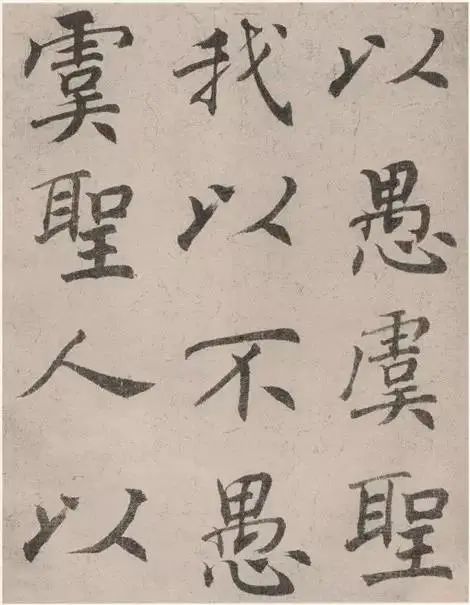 以愚虞聖
我以不愚
虞聖人以